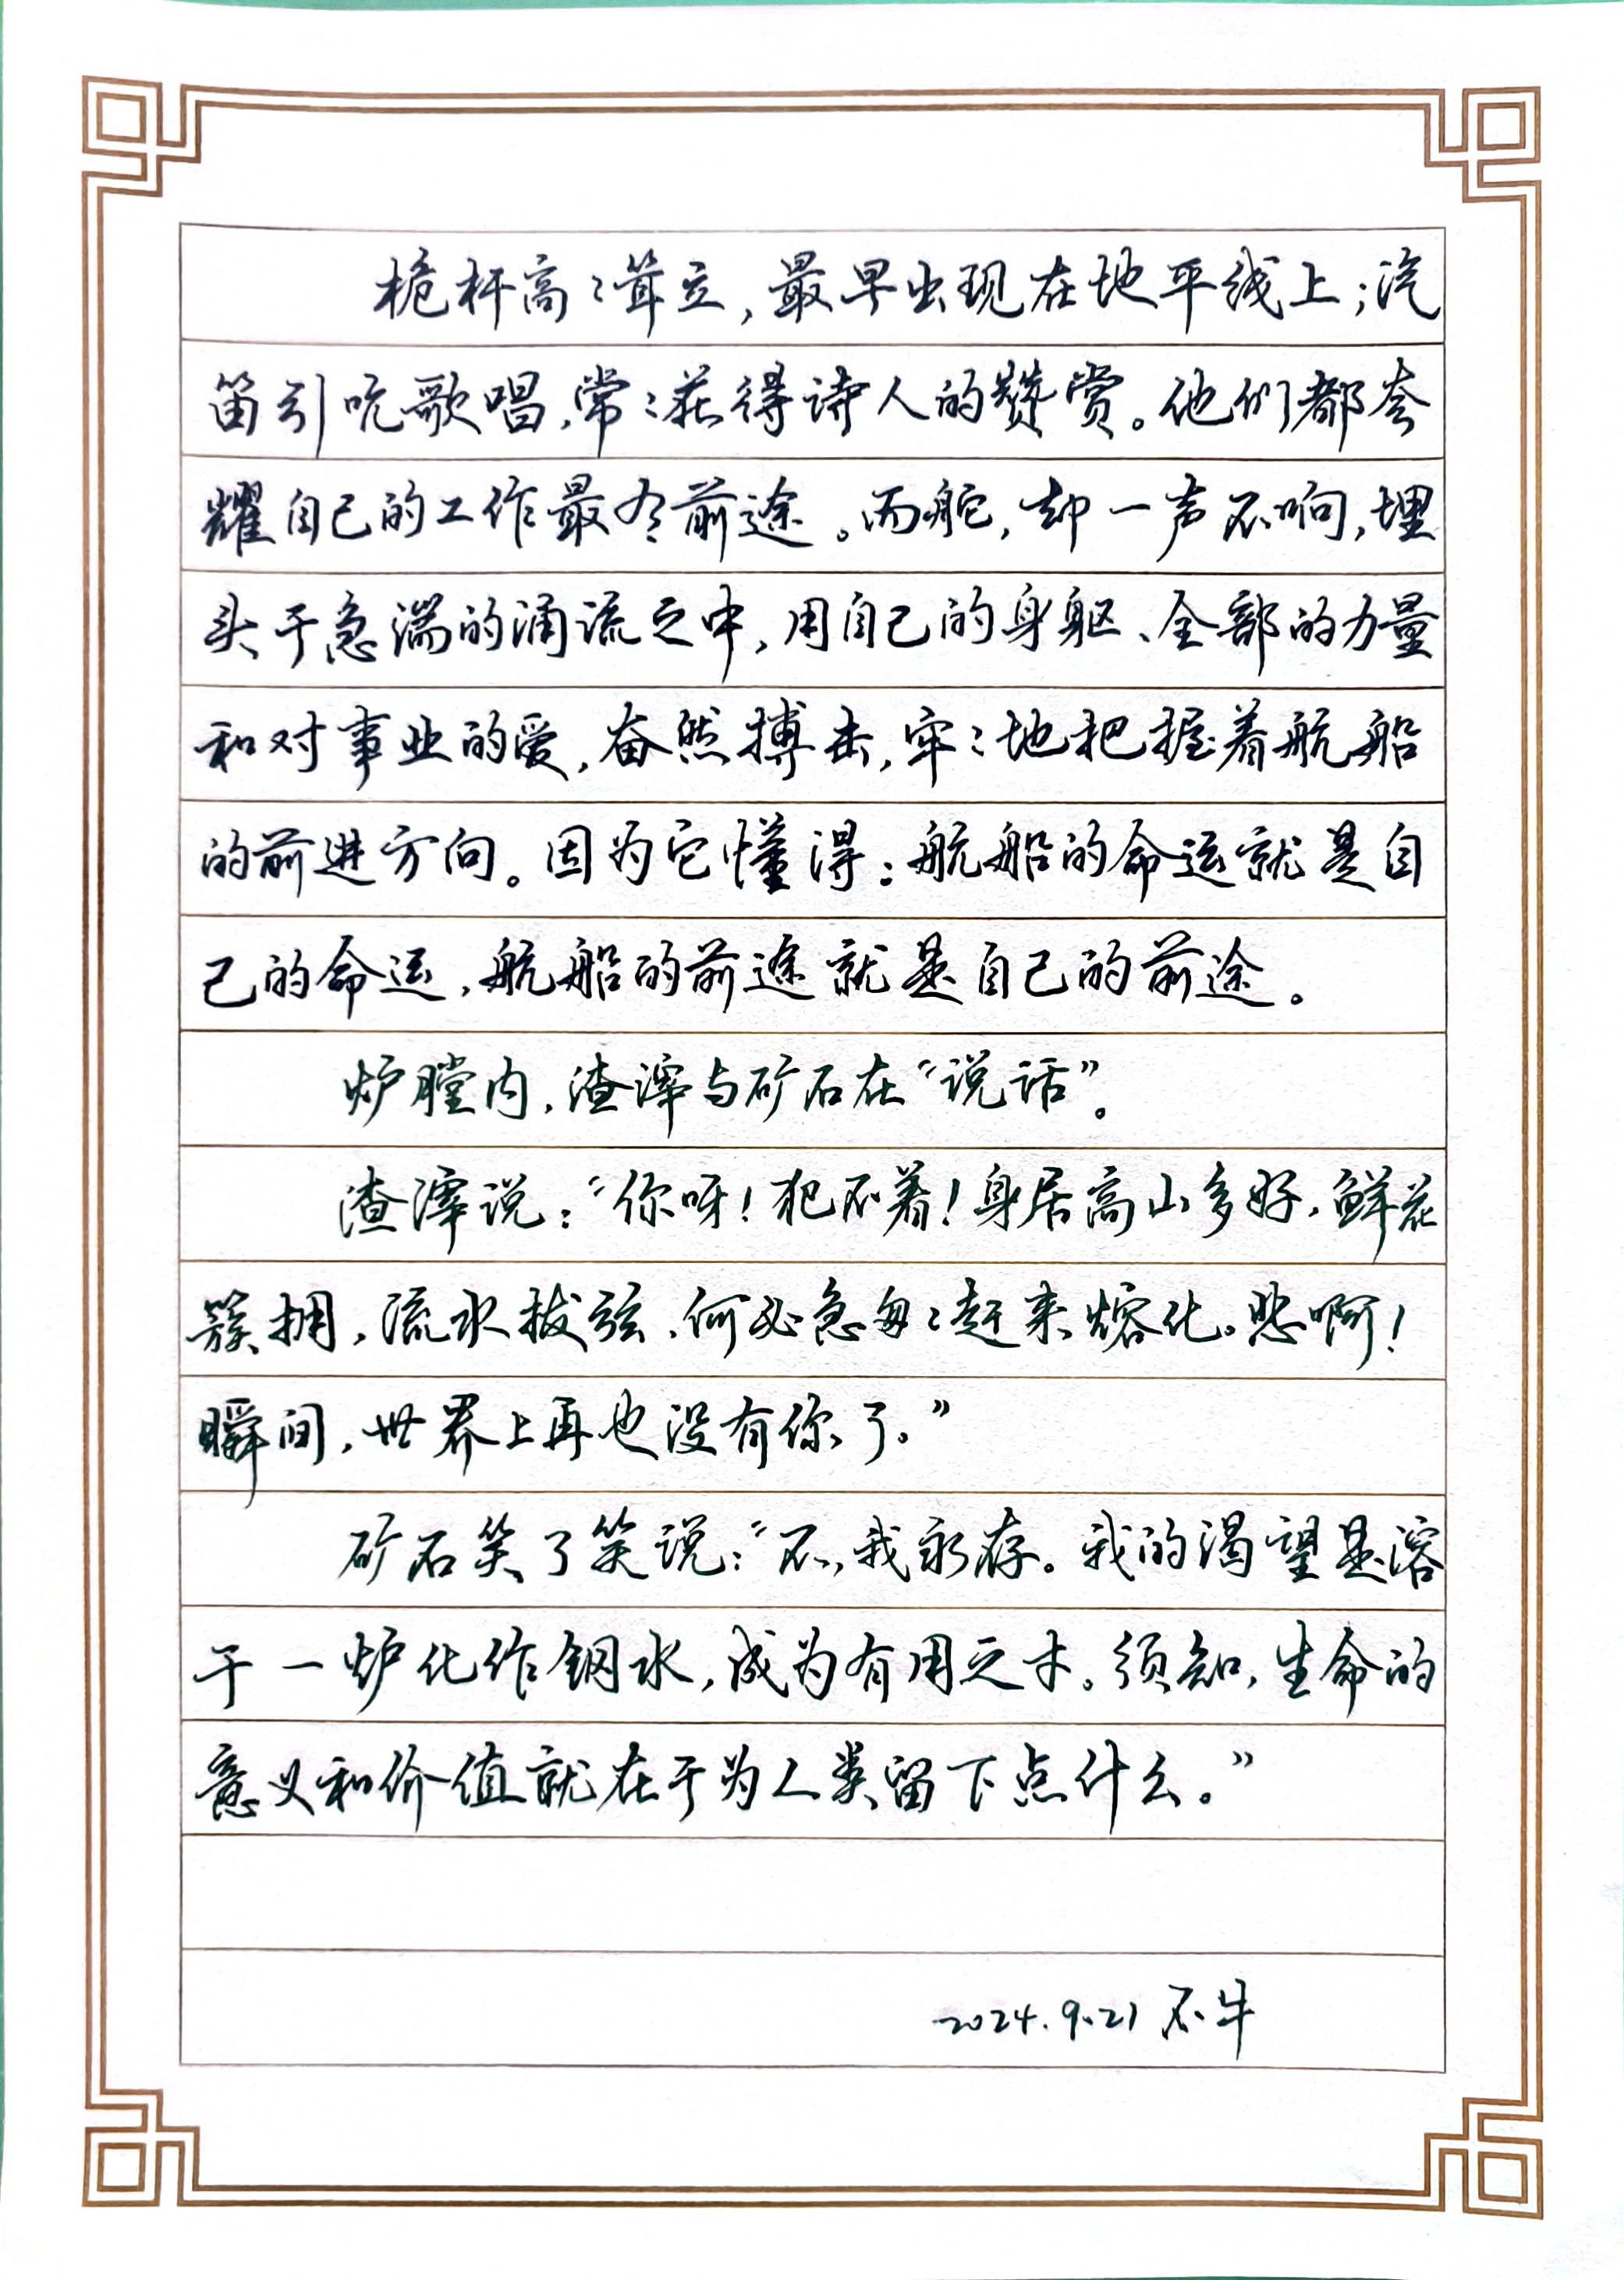 桅杆高々耸立，最早出现在地平线上；汽
笛引吭歌唱，常々获得诗人的赞赏。他们都夸
耀自己的工作最有前途。而舵，却一声不响，埋
头于急湍的涌流之中，用自己的身躯、全部的力量
和对事业的爱，奋然搏击，牢々地把握着航船
的前进方向。因为它懂得：航船的命运就是自
己的命运，航船的前途就是自己的前途。
炉膛内，渣滓与矿石在“说话”。
渣滓说：“你呀！犯不着！身居高山多好，鲜花
簇拥，流水拔弦，何必急匆々赶来熔化。悲啊！
瞬间，世界上再也没有你了。”
矿石笑了笑说：“不，我永存。我的渴望是溶
于一炉化作钢水，成为有用之才。须知，生命的
意义和价值就在于为人类留下点什么。”
2024.9.21 不牛